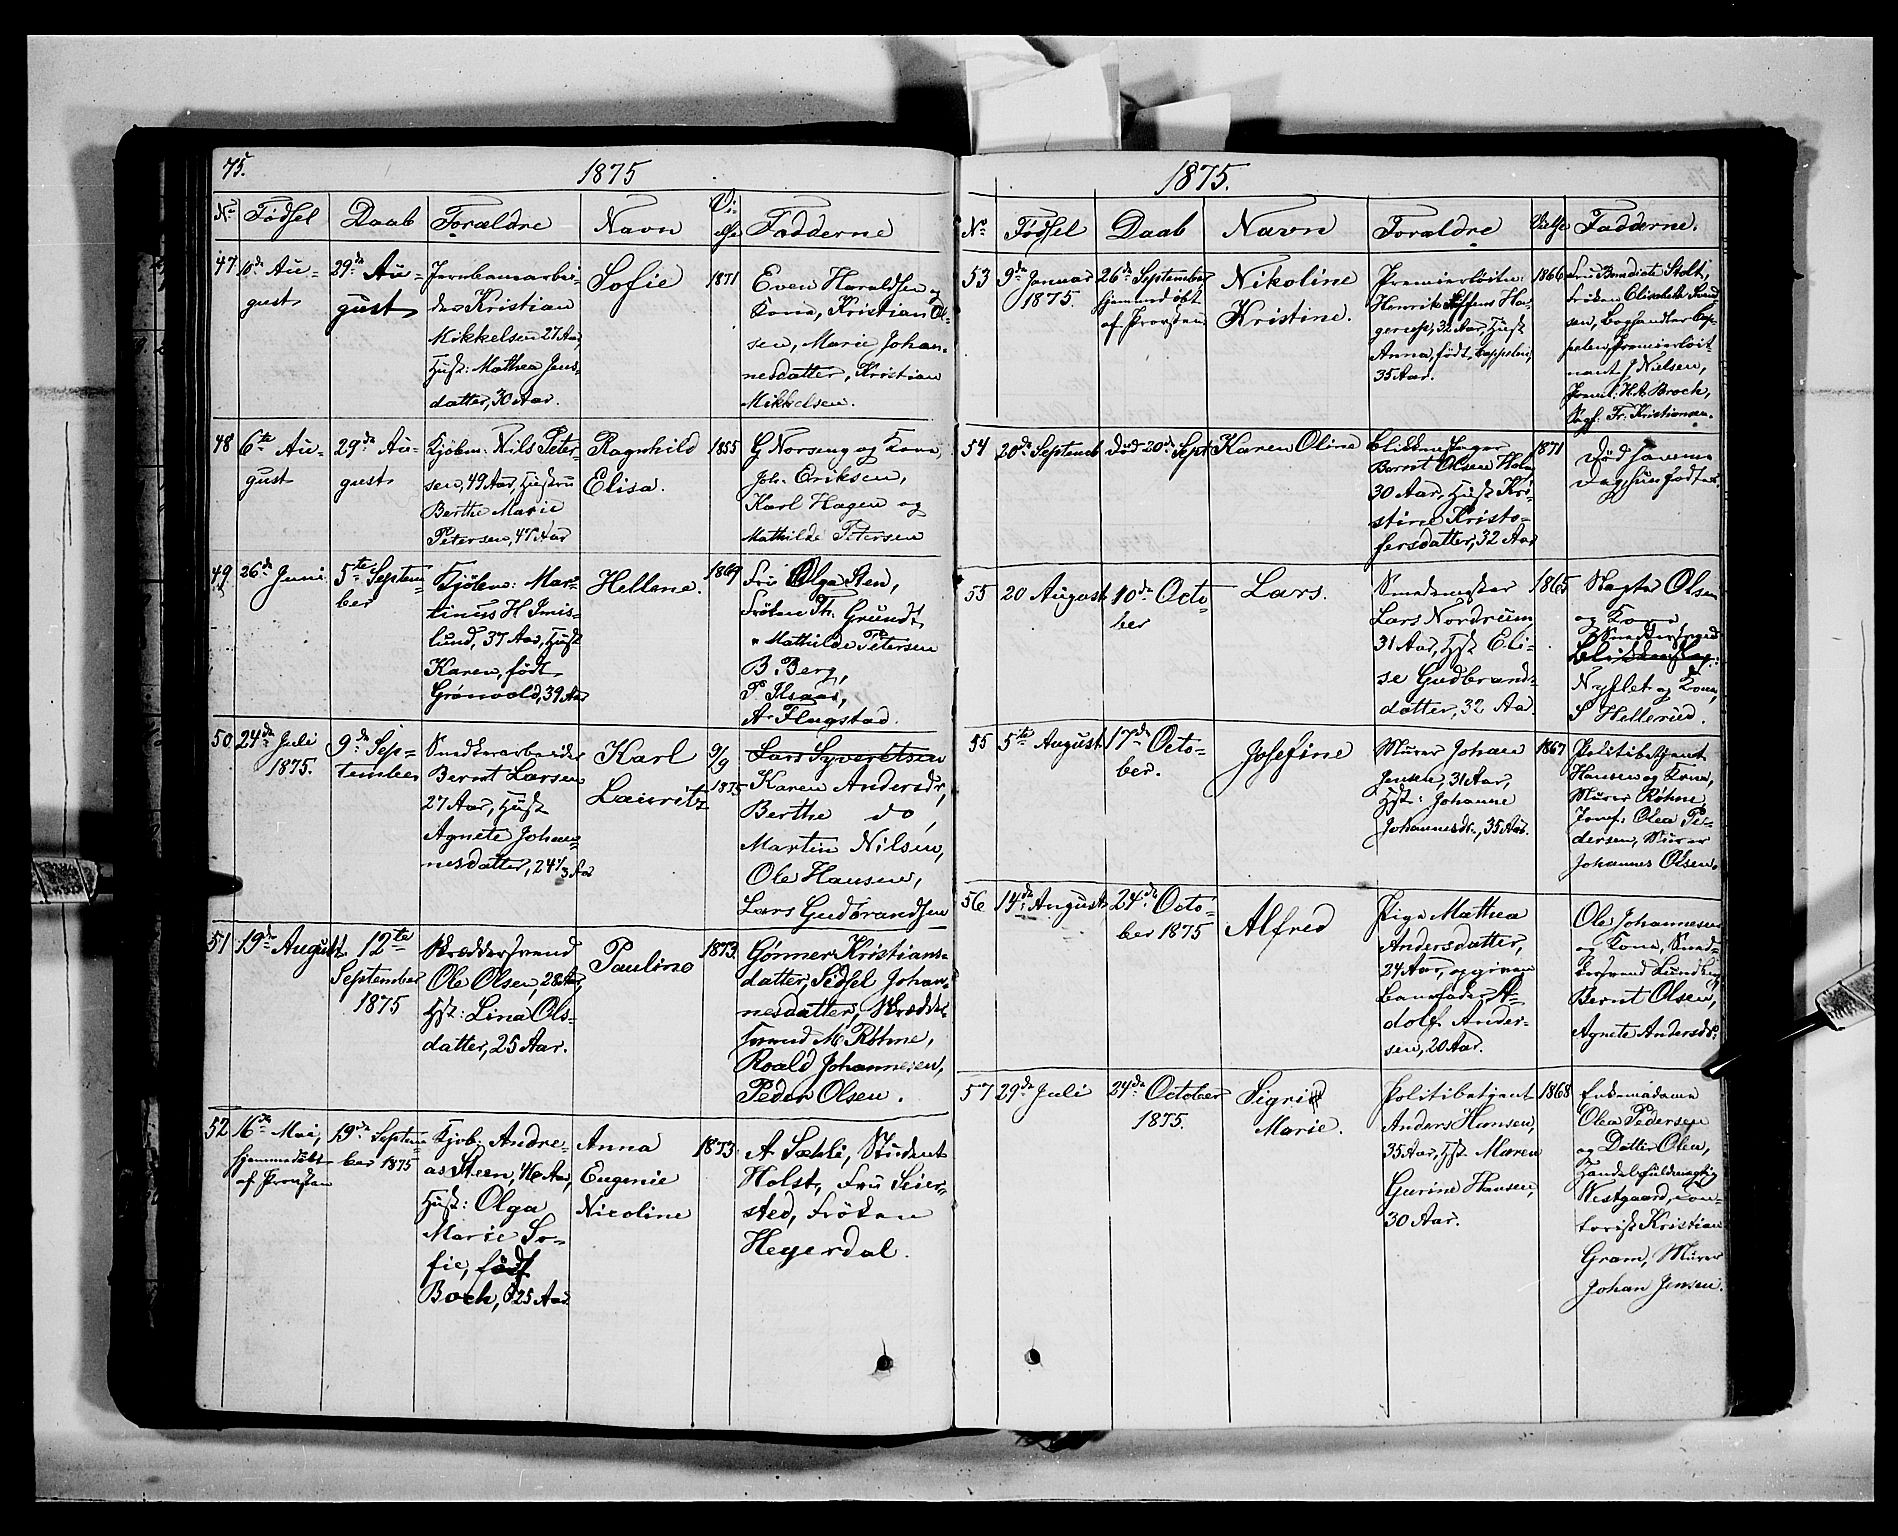 75.
1875
No Fødsel Daab Forældre Navn Vi-
else Fadderne
47 10de Au-
gust
29de Au-
gust
Jernbanearbei-
der Kristian
Mikkelsen 27 Aar
Hust: Mathea Jens-
datter, 30 Aar.
Sofie
1871
Even Haraldsen og
Kone, Kristian Ol-
sen, Marie Johan-
nesdatter, Kristian
Mikkelsen.
48 6te Au-
gust
29de Au-
gust
Kjøbm: Nils Peter-
sen, 49 Aar, Hustru
Berthe Marie
Petersen, 47 Aar
Ragnhild
Elisa.
1855
G Norseng og Kone,
Joh. Eriksen,
Karl Hagen og
Mathilde Petersen
49 26de Juni
5te Septem
ber
Kjøbm: Mar-
tinus H Imis-
lund, 37 Aar, Hust
Karen, født
Grønvold, 39 Aar
Hellene.
1869
Fru Olga Sten,
Frøken Th. Grundt
" Mathilde Petersen
B. Berg,
P Ilsaas,
A. Flugstad.
50 24de Juli
1875.
9de Sep-
tember
Smedearbeider
Bernt Larsen
27 Aar, Hust
Agnete Johan-
nesdatter, 24 1/3 Aar
Karl
Lauritz
9/9
1875
Lars Syvertsen
Karen Andersdr,
Berthe do,
Martin Nilsen,
Ole Hansen,
Lars Gudbrandsen
51 19de August
12te
September
1875
Skræddersvend
Ole Olsen, 28 Aar,
Hst: Lina Ols-
datter, 25 Aar.
Pauline
1873.
Gønner Kristians-
datter, Sidsel Johan-
nesdatter, Skrædder
svend M Røhne,
Roald Johannesen,
Peder Olsen.
52 16de Mai,
hjemmedøbt
af Provsten
19de Septem
ber 1875
Kjøb: Andre-
as Steen, 46 Aar,
Hust: Olga
Marie So-
fie, født
Boch, 25 Aar
Anna
Eugenie
Nicoline
1873
A Sæhli, Student
Holst, Fru Seier-
sted, Frøken
Heyerdal.
1875.
No Fødsel Daab Navn Forældre Vielse Fadderne.
53 9de Januar
1875.
26de September
hjemmedøbt
af Provsten
Nikoline
Kristine.
Premierløitn:
Henrik Steffens Ha-
gerup, 32 Aar, Hust
Anna, født Cappelen,
35 Aar.
1866
Fru Benedicte Stolt,
Frøken Elisabeth
sen, Boghandler Cap-
pelen, Premierløit-
nant J Nielsen,
Preml: H A Broch,
Fr. Kristiansen.
54 20de Septemb
død 20de Sept
Karen Oline
Blikkenslager
Bernt Olsen
30 Aar, Hust Kri-
stine Kristo-
fersdatter, 32 Aar
1871
Død samme
Dag, hun fødtes.
55 20 August
10de Octo-
ber
Lars.
Smedmester
Lars Nordrum
31 Aar, Hst Eli-
se Gudbrands-
datter, 32 Aa.
1865
Olsen
og Kone
Smedesvend
Blikkenslag:
Nyflet og Kone,
S Hellerud.
55 5te August
17de Octo-
ber.
Josefine
Murer Johan
Jensen, 31 Aar,
Hst: Johanne
Johannesdr, 35 Aar.
1867
Politibetjent
Hansen og Kone,
Murer Røhne
Jomf: Olea Pe-
dersen, Murer
Johannes Olsen.
56 14de August
24de Octo-
ber 1875
Alfred
Pige Mathea
Andersdatter,
24 Aar, opgiven
Barnefader A-
dolf Ander-
sen, 20 Aar.
Ole Johannesen
og Kone, Smed-
svend Lundberg
Bernt Olsen,
Agnete Andersdr.
57 29de Juli
24de October
1875.
Sigrid
Marie.
Politibetjent
Anders Hansen,
35 Aar, Hst Maren
Gurine Hansen,
30 Aar.
1868
Enkemadame
Olea Pedersen
og Datter Olea,
Handelsfuldmægtig
Westgaard, Con-
torist Kristian
Gram, Murer
Johan Jensen.